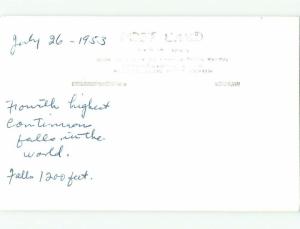 July 26 - 1953
POST CARD
Fourth highest
continuous
falls in the
world.
Falls 1200 feet.